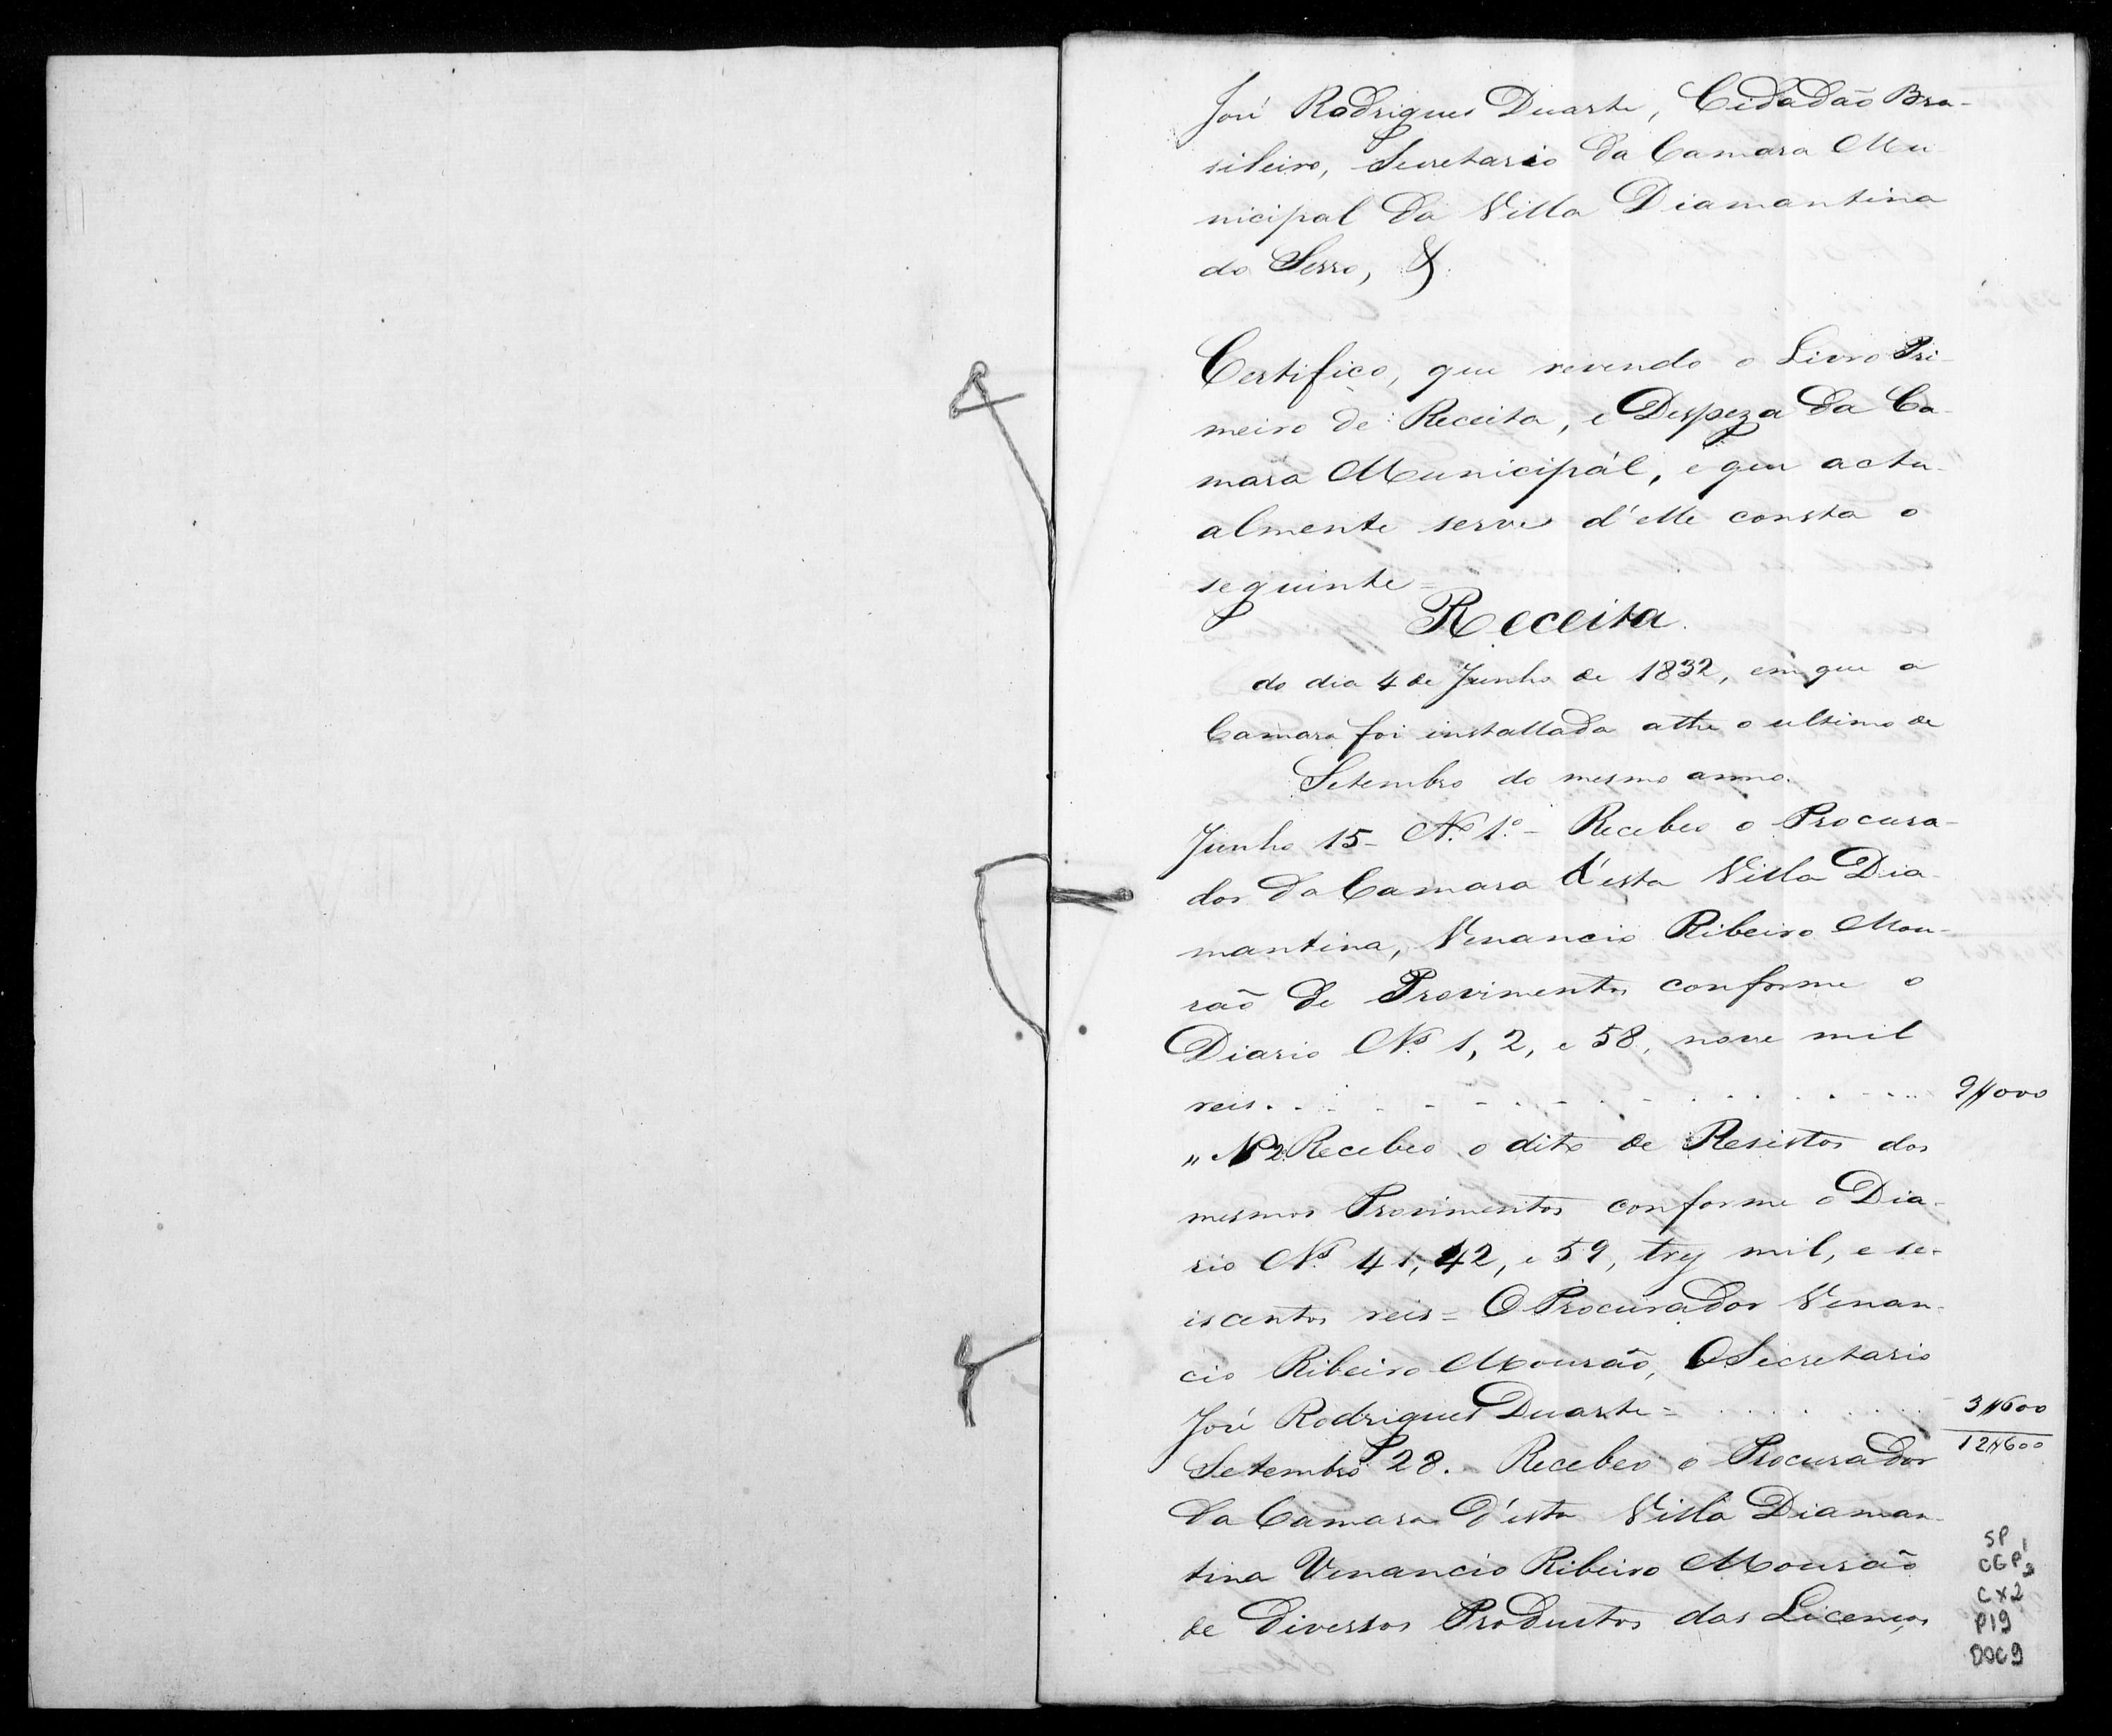 José Rodrigues Duarte, Cidadão Bra-
sileiro, Secretario da Camara Mu
nicipal da Villa Diamantina
do Serro, &.
Certifico, que revendo o Livro Pri-
meiro de Receita, e Despeza da Ca-
mara Municipál, e que actu-
almente serve d'elle consta o
seguinte =
Receita.
do dia 4 de Junho de 1832, em que a
Camara foi installada athe o ultimo de
Setembro do mesmo anno.
Junho 15 - Nº. 1º. - Recebeo o Procura-
dor da Camara d'esta Villa Dia-
mantina, Venancio Ribeiro Mou-
rão de Provimentos conforme o
Diario Nº. 1, 2, e 58, nove mil
reis. 9$000
" Nº 2 Recebeo o dito de Resistos dos
mesmos Provimentos conforme o Dia-
rio Nº. 41, 42, e 59, trez mil, e se-
iscentos reis = O Procurador Venan-
cio Ribeiro Mourão, O Secretario
José Rodrigues Duarte = 3$600
12$600
Setembro 28. - Recebeo o Procurador
da Camara d'esta Villa Diaman-
tina Venancio Ribeiro Mourão
de Diversos Productos das Licenças
SP
CGP 1
3
CX2
P19
DOC9